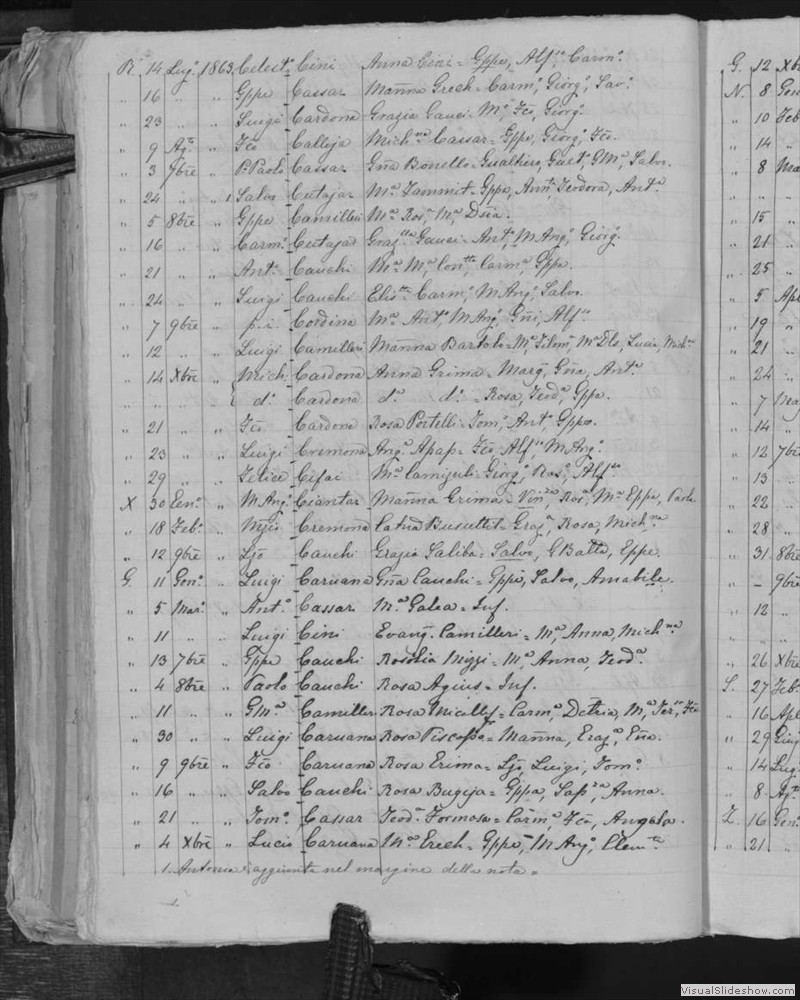 R. 14 Lugº 1863 Celestº Cini Anna Cini = Gppe, Alfso Carmº
„ 16 „ „ Gppe Cassar Manna Grech = Carmº, Giorgº, Savº
„ 23 „ „ Luigi Cardona Grazia Gauci = Mª, Fcō, Giorgº
„ 9 Agto „ Fcō Calleja Michna Cassar = Gppe, Giorgº, Fcō.
„ 3 7bre „ P. Paolo Cassar Gña Bonello = Gualtiero, Gaetº, GMª, Salvo.
„ 24 „ „ 1 Salvo Cutajar Mª Tammit = Gppe, Annta, Teodora, Antª
„ 5 8bre „ Gppe Camilleri Mª Rosª Mª, Dña.
„ 16 „ „ Carmº Cutajar Grazlla Gauci = Antº, M Angº, Giorgº.
„ 21 „ „ Antº Cauchi Mª = Mª, Contta, Carmª, Gppa.
„ 24 „ „ Luigi Cauchi Elistta Carmº, M Angº, Salvo.
„ 7 9bre „ p. i. Cordina Mª Antº, M Angº, Gñi, Alfso
„ 12 „ „ Luigi Camilleri Manna Bartoli = Mª, Lucia, Michna
„ 14 Xbre „ Mich: Cardona Anna Grima = Margª, Gña, Antª
„ „ „ „ dº Cardona dª dª = Rosa, Teodª, Gppa.
„ 21 „ „ Fcō Cardona Rosa Portelli = Tomº, Antº, Gppe.
„ 23 „ „ Luigi Cremona Angª Apap = Fcō, Alfso, M Angº
„ 29 „ „ Felice Cifai Mª Camiguli = Giorgº, Rosª, Alfso
X 30 Genº „ M Angº Ciantar Manna Grima = Vinzo, Rosª, Mª Gppe, Paolo
„ 18 Febº „ Cremona Catña Busuttil = Grazª, Rosa, Michna
„ 12 9bre „ Ljō Cauchi Grazia Saliba = Salvo, G Batta, Gppe.
G. 11 Genº „ Luigi Caruana Gña Cauchi = Gppe, Salvo, Amabile.
„ 5 Marº „ Antº Cassar Mª Galea = Inf.
„ 11 „ „ Luigi Cini Evangª Camilleri = Mª, Anna, Michna
„ 13 7bre „ Gppe Cauchi Rosolia Mizzi = Mª, Anna, Teodª
„ 4 8bre „ Paolo Cauchi Rosa Agius = Inf.
„ 11 „ „ GMª Camilleri Rosa Micallef = Carmª, Mª, Tersª, Fcō
„ 30 „ „ Luigi Caruana Rosa Piscopo = Manna, Grazª, Gña.
„ 9 9bre „ Fcō Caruana Rosa Grima = Ljō, Luigi, Tomº
„ 16 „ „ Salvo Cauchi Rosa Bugeja = Gppa, Sapza, Anna.
„ 21 „ „ Tomº Cassar Teodª Formosa = Carmª, Fcō, Angola.
„ 4 Xbre „ Lucio Caruana Mª Grech = Gppe, M Angº, Clemte
1. Antonia è aggiunta nel margine della nota =
G. 12 Xbr
N. 8 Gen
„ 10 Feb
„ 14 „
„ 8 Ma
„ „ „
„ 15 „
„ 21 „
„ 25 „
„ 5 Apl
„ 19 „
„ 21 „
„ 24 „
„ 7 Ma
„ 14 „
„ 12 7br
„ 13 „
„ 22 „
„ 28 „
„ 31 8bre
„ – 9bre
„ 12 „
„ „ „
„ 26 Xbr
S. 27 Feb
„ 16 Apl
„ 29 Giug
„ 14 Lug
„ 8 Agt
Z. 16 Genº
„ 21 „
VisualSlideshow.com